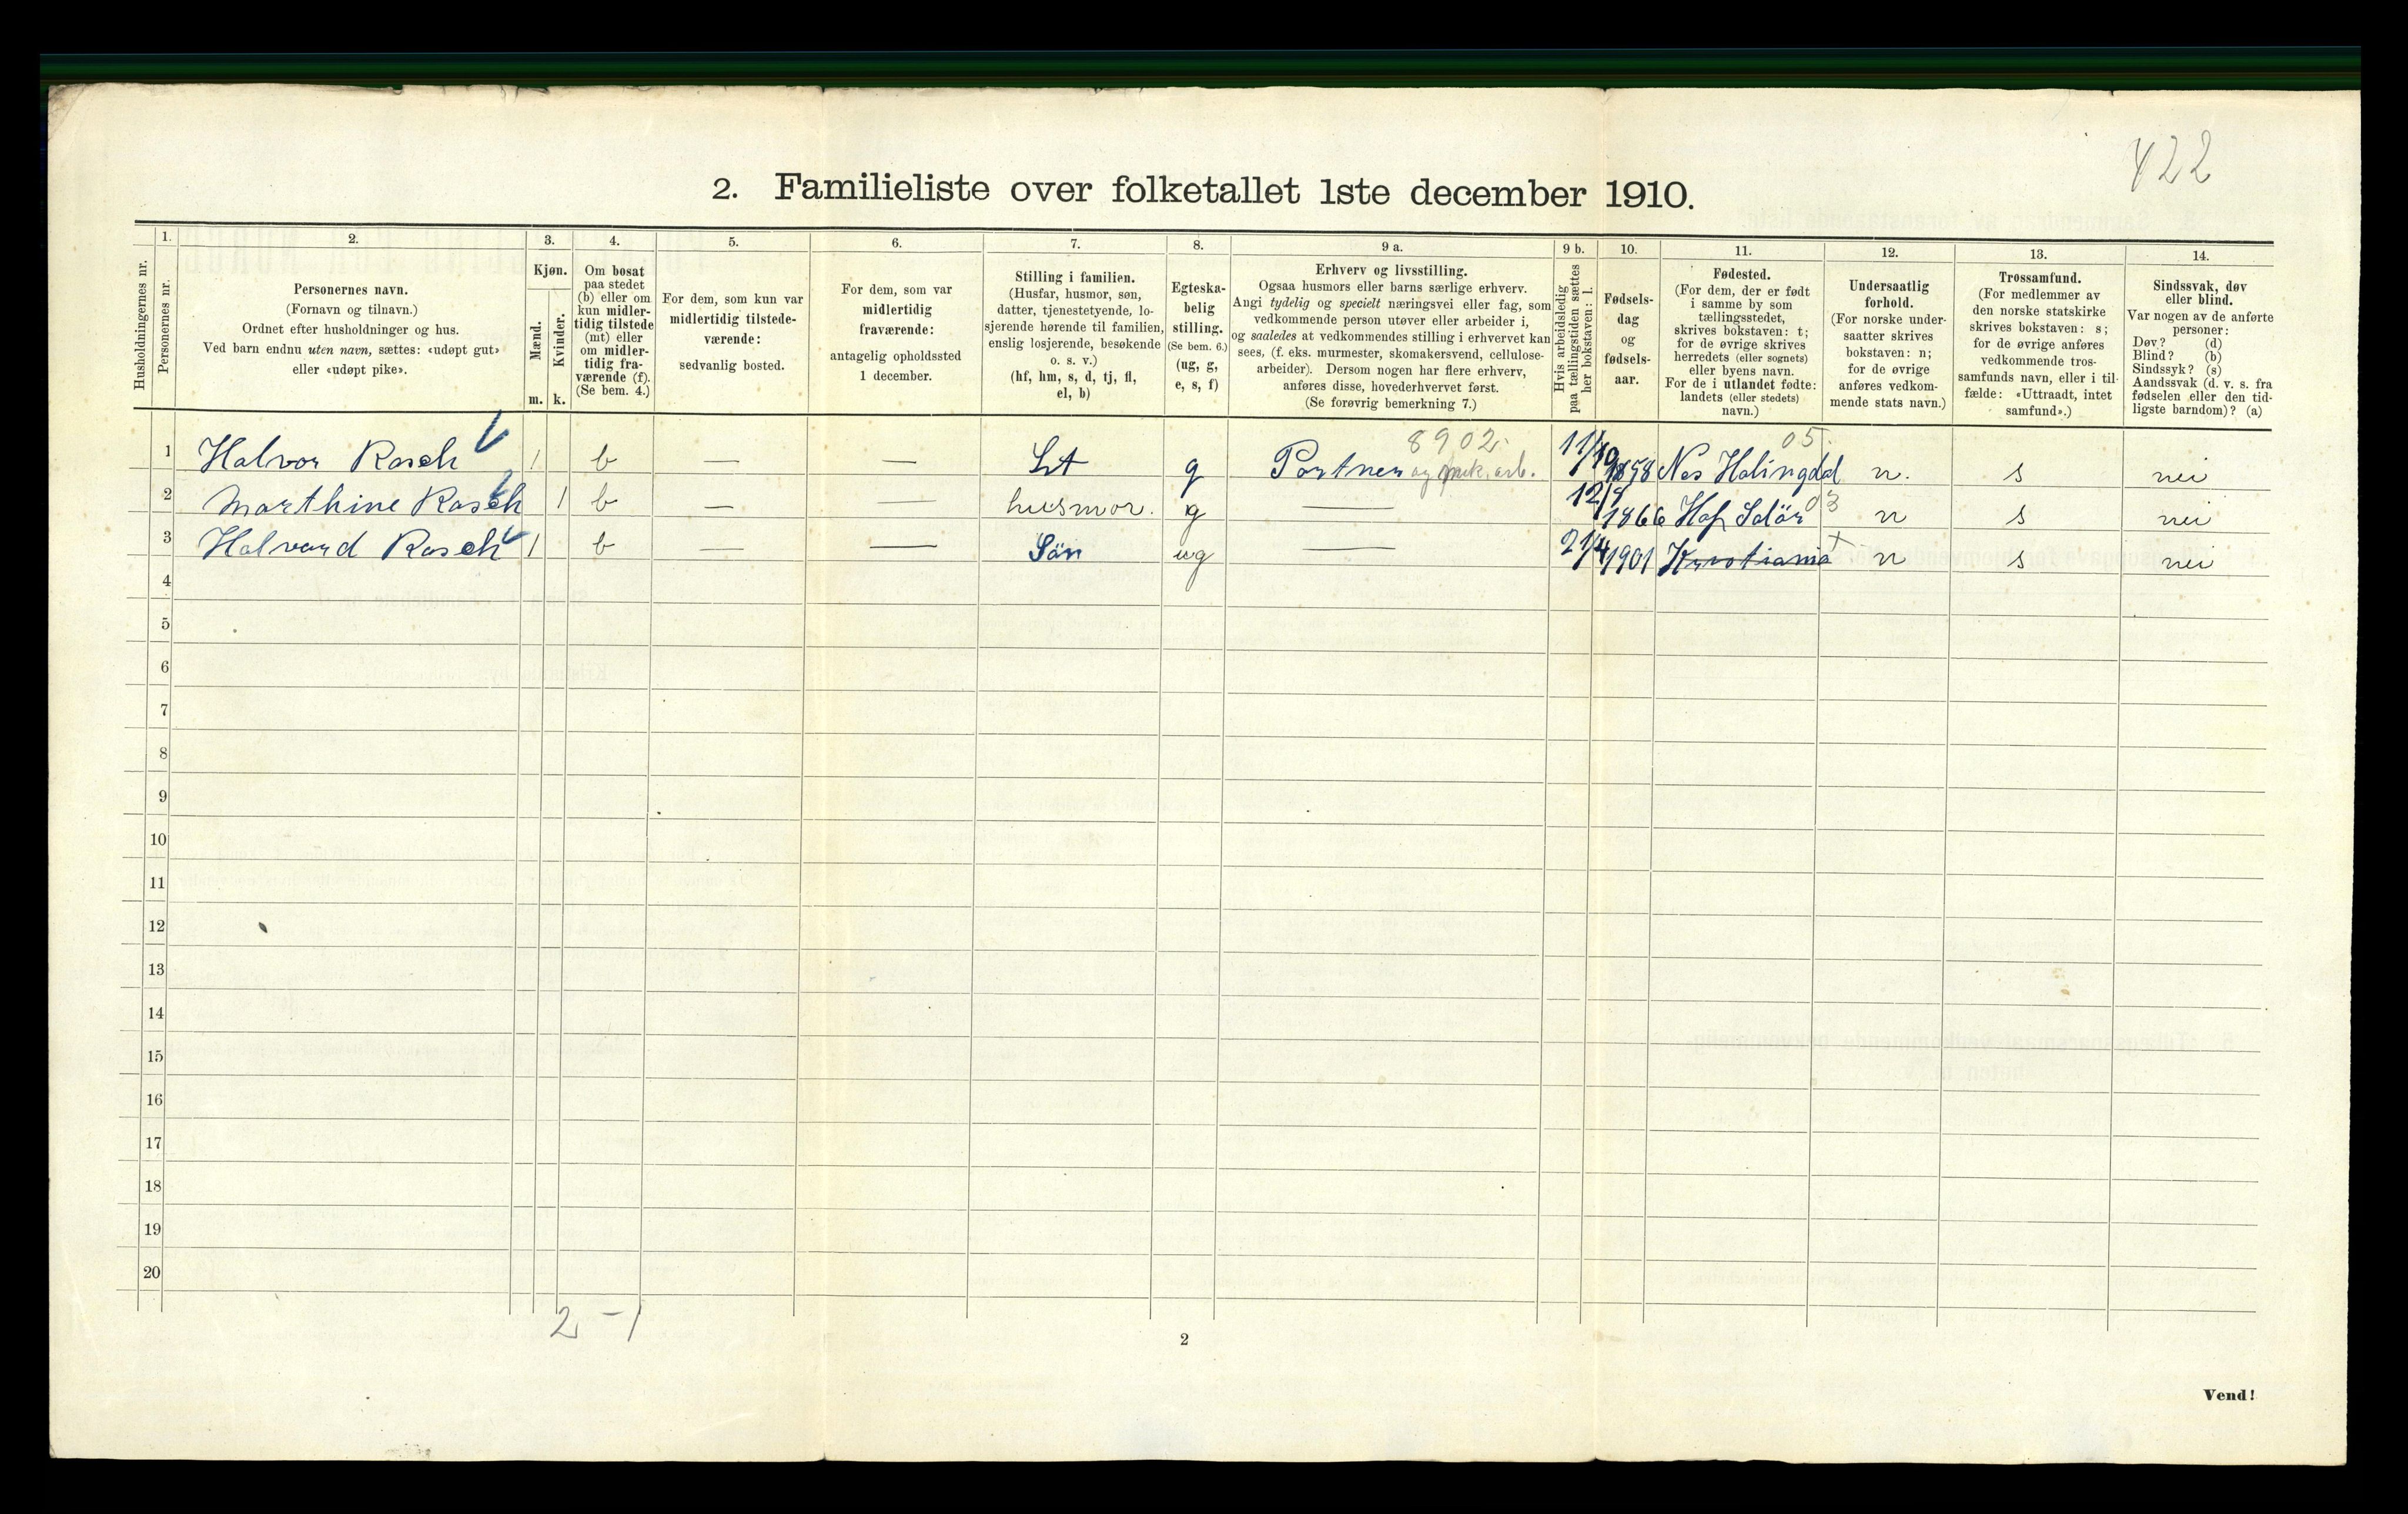 422
2. Familieliste over folketallet 1ste december 1910.
Husholdningernes nr.
1.
Personernes nr.
2.
Personernes navn.
(Fornavn og tilnavn.)
Ordnet efter husholdninger og hus.
Ved barn endnu uten navn, sættes: «udøpt gut»
eller «udøpt pike».
3.
Kjøn.
Mænd.
Kvinder.
m. k.
4.
Om bosat
paa stedet
(b) eller om
kun midler-
tidig tilstede
(mt) eller
om midler-
tidig fra-
værende (f).
(Se bem. 4.)
5.
For dem, som kun var
midlertidig tilstede-
værende:
sedvanlig bosted.
6.
For dem, som var
midlertidig
fraværende:
antagelig opholdssted
1 december.
7.
Stilling i familien.
(Husfar, husmor, søn,
datter, tjenestetyende, lo-
sjerende hørende til familien,
enslig losjerende, besøkende
o. s. v.)
(hf, hm, s, d, tj, fl,
el, b)
8.
Egteska-
belig
stilling.
(Se bem. 6.)
(ug, g,
e, s, f)
9 a.
Erhverv og livsstilling.
Ogsaa husmors eller barns særlige erhverv.
Angi tydelig og specielt næringsvei eller fag, som
vedkommende person utøver eller arbeider i,
og saaledes at vedkommendes stilling i erhvervet kan
sees, (f. eks. murmester, skomakersvend, cellulose-
arbeider). Dersom nogen har flere erhverv,
anføres disse, hovederhvervet først.
(Se forøvrig bemerkning 7.)
9 b.
Hvis arbeidsledig
paa tællingstiden sættes
her bokstaven: l.
10.
Fødsels-
dag
og
fødsels-
aar.
11.
Fødested.
(For dem, der er født
i samme by som
tællingsstedet,
skrives bokstaven: t;
for de øvrige skrives
herredets (eller sognets)
eller byens navn.
For de i utlandet fødte:
landets (eller stedets)
navn.)
12.
Undersaatlig
forhold.
(For norske under-
saatter skrives
bokstaven: n;
for de øvrige
anføres vedkom-
mende stats navn.)
13.
Trossamfund.
(For medlemmer av
den norske statskirke
skrives bokstaven: s;
for de øvrige anføres
vedkommende tros-
samfunds navn, eller i til-
fælde: «Uttraadt, intet
samfund».)
14.
Sindssvak, døv
eller blind.
Var nogen av de anførte
personer:
Døv? (d)
Blind? (b)
Sindssyk? (s)
Aandssvak (d. v. s. fra
fødselen eller den tid-
ligste barndom)? (a)
8902. 05.
1 Halvor Rasch 1 b — — g Portner og arb. 11/10 1858 Nes Halingdal n. s nei
2 Marthine Rasch 1 b — — husmor. g — 12/9 1866 Hof Solör 03 n s nei
3 Halvard Rasch 1 b — — Sön ug — 21/4 1901 Kristiania t n s nei
4
5
6
7
8
9
10
11
12
13
14
15
16
17
18
19
20
2 – 1
2
Vend!